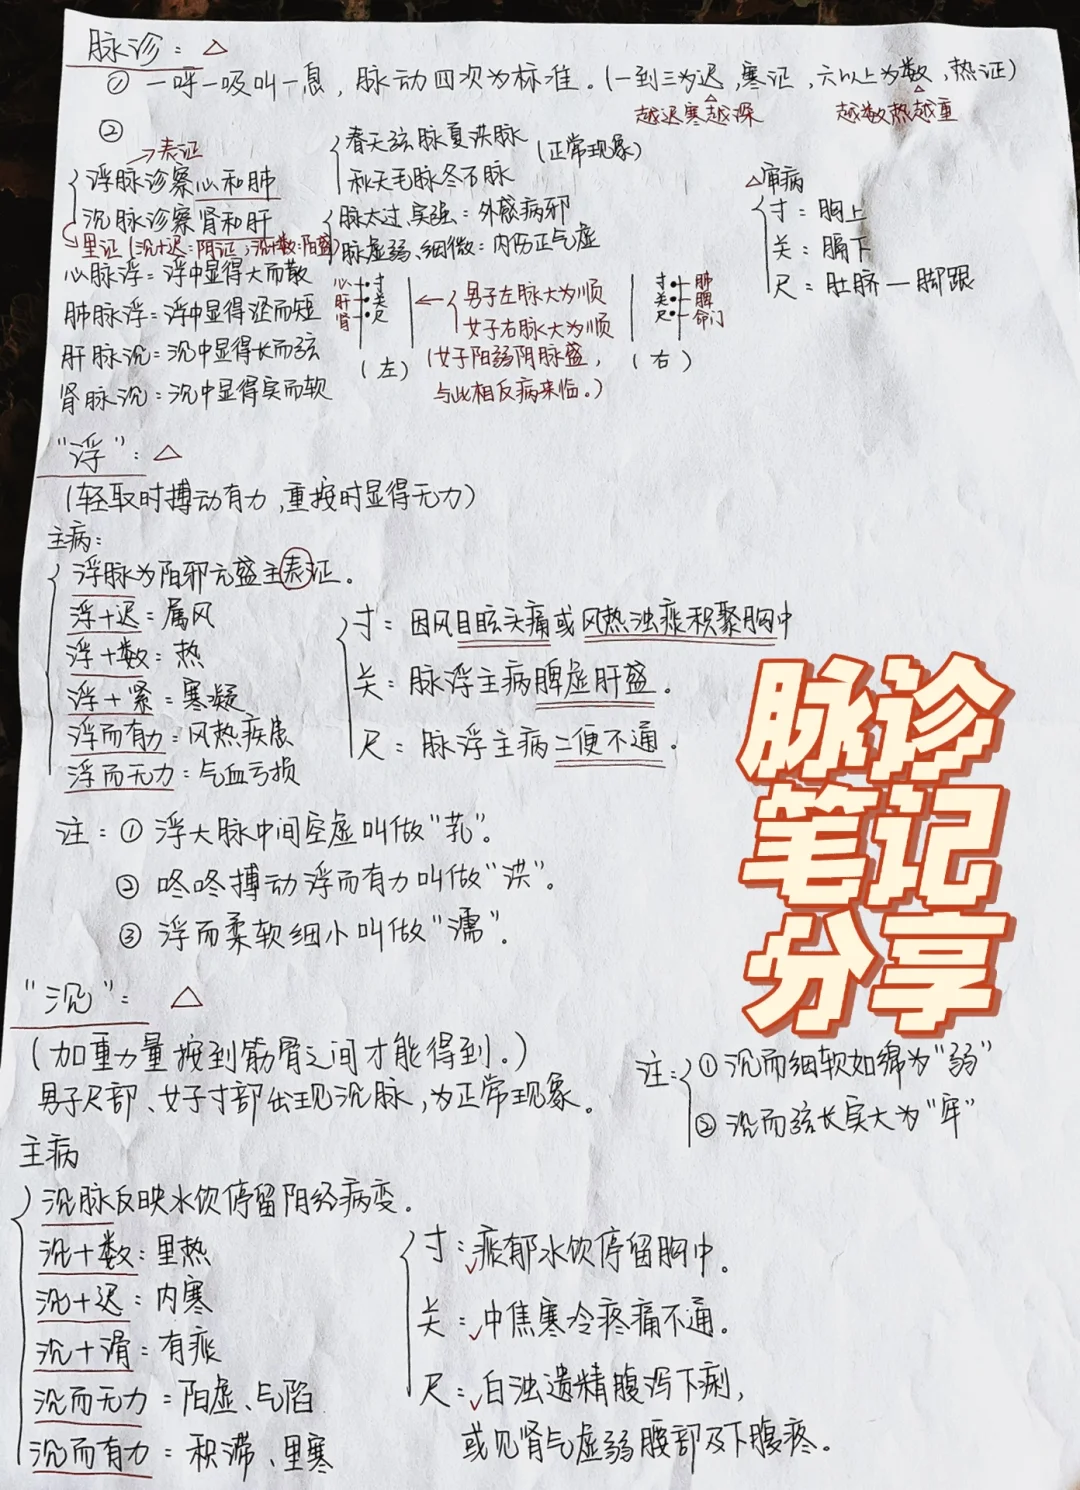 脉诊：△
① 一呼一吸叫一息，脉动四次为标准。(一到三为迟，寒证，六以上为数，热证)
越迟寒越深
越数热越重
②
→表证
浮脉诊察心和肺
沉脉诊察肾和肝
里证(沉+迟：阴证，沉+数：阳盛)
春天弦脉夏洪脉
秋天毛脉冬石脉
(正常现象)
脉太过、实强：外感病邪
脉虚弱、细微：内伤正气虚
△审病
寸：胸上
关：膈下
尺：肚脐—脚跟
心脉浮：浮中显得大而散
肺脉浮：浮中显得涩而短
肝脉沉：沉中显得长而弦
肾脉沉：沉中显得实而软
心 寸
肝 关
肾 尺
(左)
男子左脉大为顺
女子右脉大为顺
(女子阳弱阴脉盛，
与此相反病来临。)
寸 肺
关 脾
尺 命门
(右)
"浮"：△
(轻取时搏动有力，重按时显得无力)
主病：
浮脉为阳邪亢盛主表证。
浮+迟：属风
浮+数：热
浮+紧：寒凝
浮而有力：风热疾患
浮而无力：气血亏损
寸：因风目眩头痛或风热浊痰积聚胸中
关：脉浮主病脾虚肝盛。
尺：脉浮主病二便不通。
注：① 浮大脉中间空虚叫做"芤"。
② 咚咚搏动浮而有力叫做"洪"。
③ 浮而柔软细小叫做"濡"。
脉诊
笔记
分享
"沉"：△
(加重力量按到筋骨之间才能得到。)
男子尺部、女子寸部出现沉脉，为正常现象。
注：① 沉而细软如绵为"弱"
② 沉而弦长实大为"牢"
主病
沉脉反映水饮停留阴经病变。
沉+数：里热
沉+迟：内寒
沉+滑：有痰
沉而无力：阳虚、气陷
沉而有力：积滞、里寒
寸：痰郁水饮停留胸中。
关：中焦寒冷疼痛不通。
尺：白浊遗精腹泻下痢，
或见肾气虚弱腰部及下腹疼。